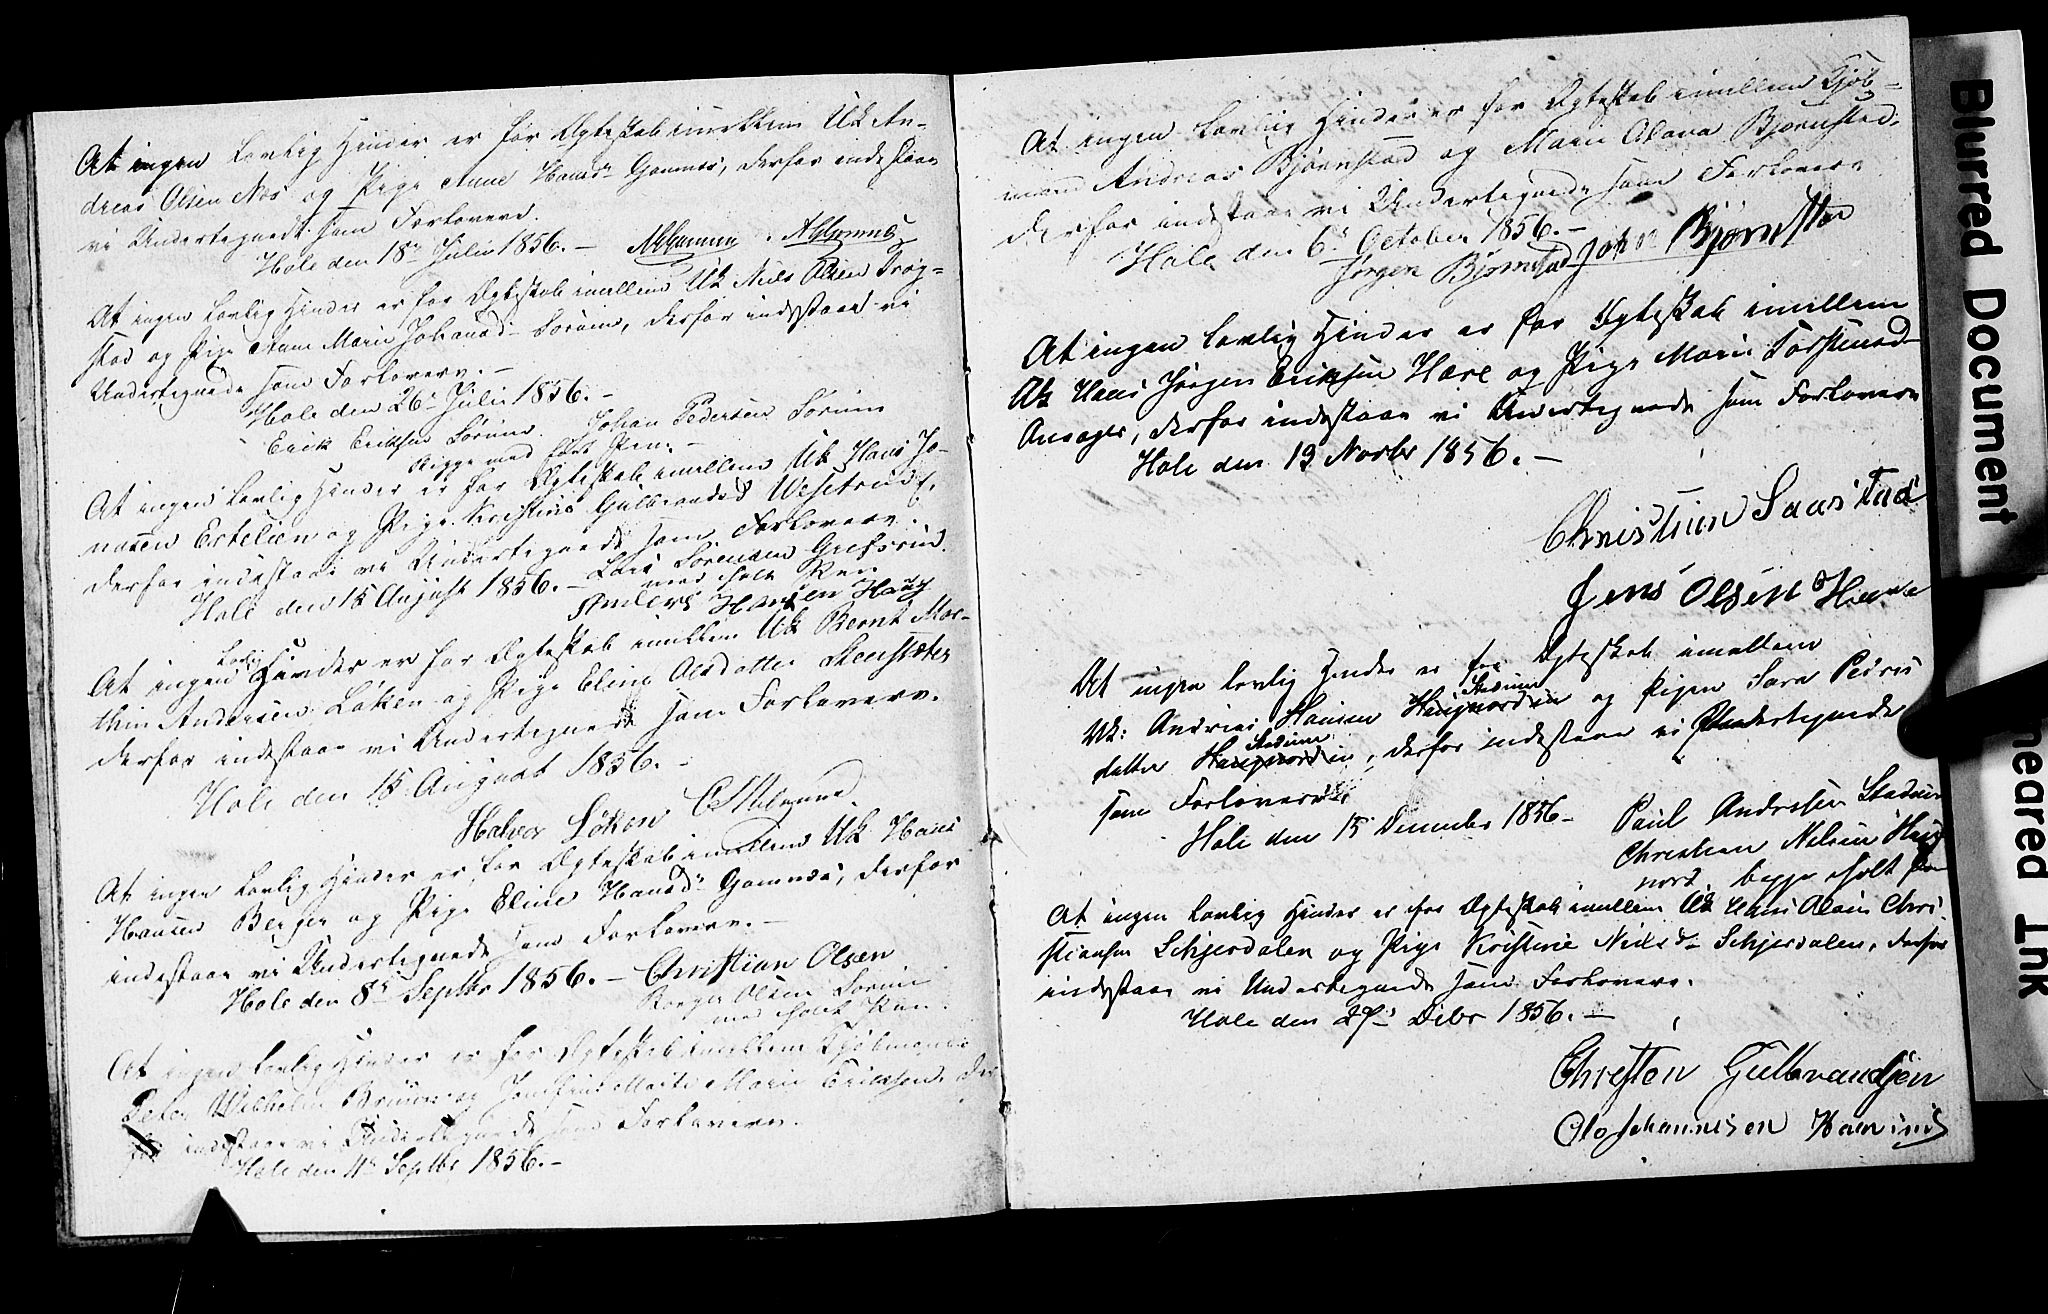 At ingen Lovlig Hinder er for Ægteskab imellem Uk An-
dreas Olsen Næs og Pige Anne Hansd. Gomnæs, derfor indestaae
vi Undertegnede som Forlovere.
Hole den 18de Julii 1856. –
At ingen Lovlig Hinder er for Ægteskab imellem Uk Niels Olsen Trøg-
stad og Pige Anne Marie Johansd. Sørum, derfor indestaae vi
Undertegnede som Forlovere. –
Hole den 26. Julii 1856. –
Erick Eriksen Sørum. Johan Pedersen Sørum
Begge med holt Pen. –
At ingen Lovlig Hinder er for Ægteskab imellem Uk Hans Jo-
nasen Estelien og Pige Kristine Gulbrandsd Wesetrud,
derfor indestaae vi Undertegnede som Forlovere.
Hole den 15 August 1856. – Lars Sørensen Grefsrud
med holt Pen
Anders Hansen Haug
At ingen Lovlig Hinder er for Ægteskab imellem Uk Bernt Mar-
thin Andersen Løken og Pige Eline Olsdatter Steensæter
derfor indestaae vi Undertegnede som Forlovere.
Hole den 15 August 1856. –
Halvor Løken
At ingen Lovlig Hinder er for Ægteskab imellem Uk Hans
Hansen Berger og Pige Eline Hansd. Gomnæs, derfor
indestaae vi Undertegnede som Forlovere. –
Hole den 8de Septbr 1856. – Christian Olsen
Olsen Sørum
med holt Pen.
At ingen Lovlig Hinder er for Ægteskab imellem Kjøbmand
Peter Wilhelm Bruun og Jomfru Marte Marie Eriksen, der
for indestaae vi Undertegnede som Forlovere.
Hole den 4de Septbr 1856. –
At ingen Lovlig Hinder er for Ægteskab imellem Kjøb-
mand Andreas Bjørnstad og Marie Olava Bjørnstad,
derfor indestaae vi Undertegnede som Forlovere
Hole den 6. October 1856. –
Jørgen Bjørnstad John Bjørnstad
At ingen Lovlig Hinder er for Ægteskab imellem
Uk Hans Jørgen Eriksen Hære og Pige Marie Torstensd
Onsager, derfor indestaae vi Undertegnede som Forlovere
Hole den 19 Novbr 1856. –
Christian Saastad
Jens Olsen Hære
At ingen lovlig Hinder er for Ægteskab imellem
Stadum
Uk: Andreas Hansen Haugnordin og Pigen Sara Peders
Stadum
datter Haugnordin, derfor indestaae vi Undertegnede
som Forlovere.
Hole den 15 December 1856 – Paul Andersen Stadum
Christian Nilsen Haug
nord begge holt Pen
At ingen Lovlig Hinder er for Ægteskab imellem Uk Hans Olaus Chri-
stiansen Schjerdalen og Pige Kristine Nielsd. Schjerdalen, derfor
indestaae vi Undertegnede som Forlovere.
Hole den 27. Debr 1856. –
Christen Gulbrandsen
Ole Johannesen Hamnæs
Blurred Document
Smeared Ink